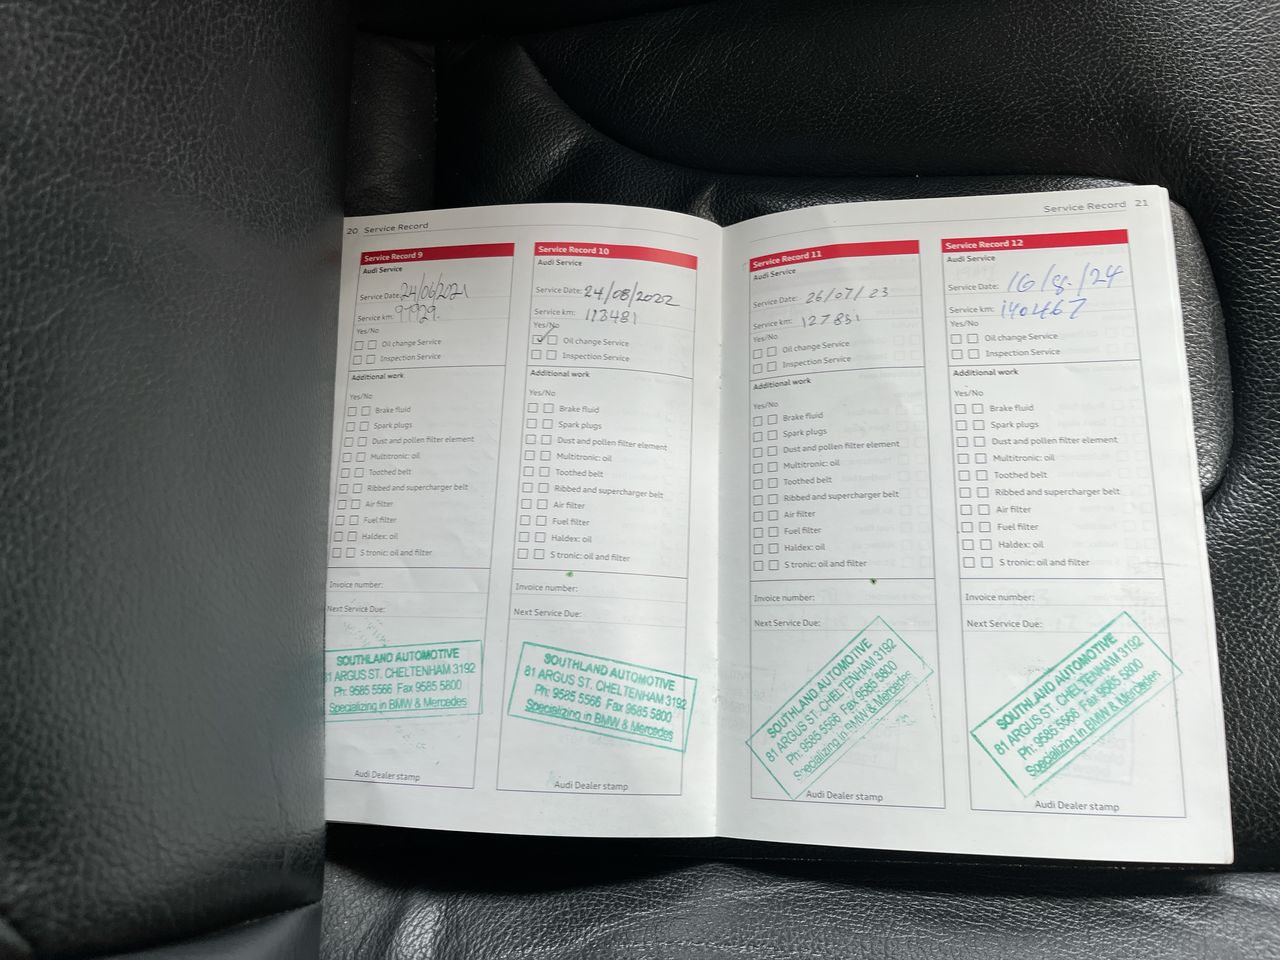 20 Service Record
Service Record 9
Audi Service
Service Date: 24/06/2021
Service km: 97929.
Yes/No
Oil change Service
Inspection Service
Additional work
Yes/No
Brake fluid
Spark plugs
Dust and pollen filter element
Multitronic: oil
Toothed belt
Ribbed and supercharger belt
Air filter
Fuel filter
Haldex: oil
S tronic: oil and filter
Invoice number:
Next Service Due:
SOUTHLAND AUTOMOTIVE
81 ARGUS ST. CHELTENHAM 3192
Ph: 9585 5566 Fax 9585 5800
Specializing in BMW & Mercedes
Audi Dealer stamp
Service Record 10
Audi Service
Service Date: 24/08/2022
Service km: 113481
Yes/No
Oil change Service
Inspection Service
Additional work
Yes/No
Brake fluid
Spark plugs
Dust and pollen filter element
Multitronic: oil
Toothed belt
Ribbed and supercharger belt
Air filter
Fuel filter
Haldex: oil
S tronic: oil and filter
Invoice number:
Next Service Due:
SOUTHLAND AUTOMOTIVE
81 ARGUS ST. CHELTENHAM 3192
Ph: 9585 5566 Fax 9585 5800
Specializing in BMW & Mercedes
Audi Dealer stamp
Service Record 21
Service Record 11
Audi Service
Service Date: 26/07/23
Service km: 127851
Yes/No
Oil change Service
Inspection Service
Additional work
Yes/No
Brake fluid
Spark plugs
Dust and pollen filter element
Multitronic: oil
Toothed belt
Ribbed and supercharger belt
Air filter
Fuel filter
Haldex: oil
S tronic: oil and filter
Invoice number:
Next Service Due:
SOUTHLAND AUTOMOTIVE
81 ARGUS ST. CHELTENHAM 3192
Ph: 9585 5566 Fax 9585 5800
Specializing in BMW & Mercedes
Audi Dealer stamp
Service Record 12
Audi Service
Service Date: 16/8/24
Service km: 140467
Yes/No
Oil change Service
Inspection Service
Additional work
Yes/No
Brake fluid
Spark plugs
Dust and pollen filter element
Multitronic: oil
Toothed belt
Ribbed and supercharger belt
Air filter
Fuel filter
Haldex: oil
S tronic: oil and filter
Invoice number:
Next Service Due:
SOUTHLAND AUTOMOTIVE
81 ARGUS ST. CHELTENHAM 3192
Ph: 9585 5566 Fax 9585 5800
Specializing in BMW & Mercedes
Audi Dealer stamp